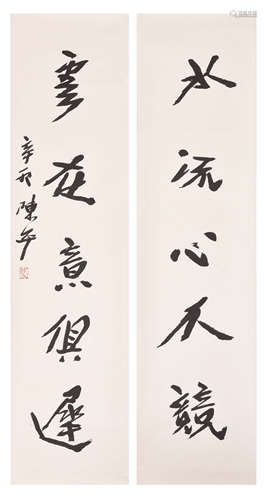 水流心不競
雲在意俱遲
辛卯陳平